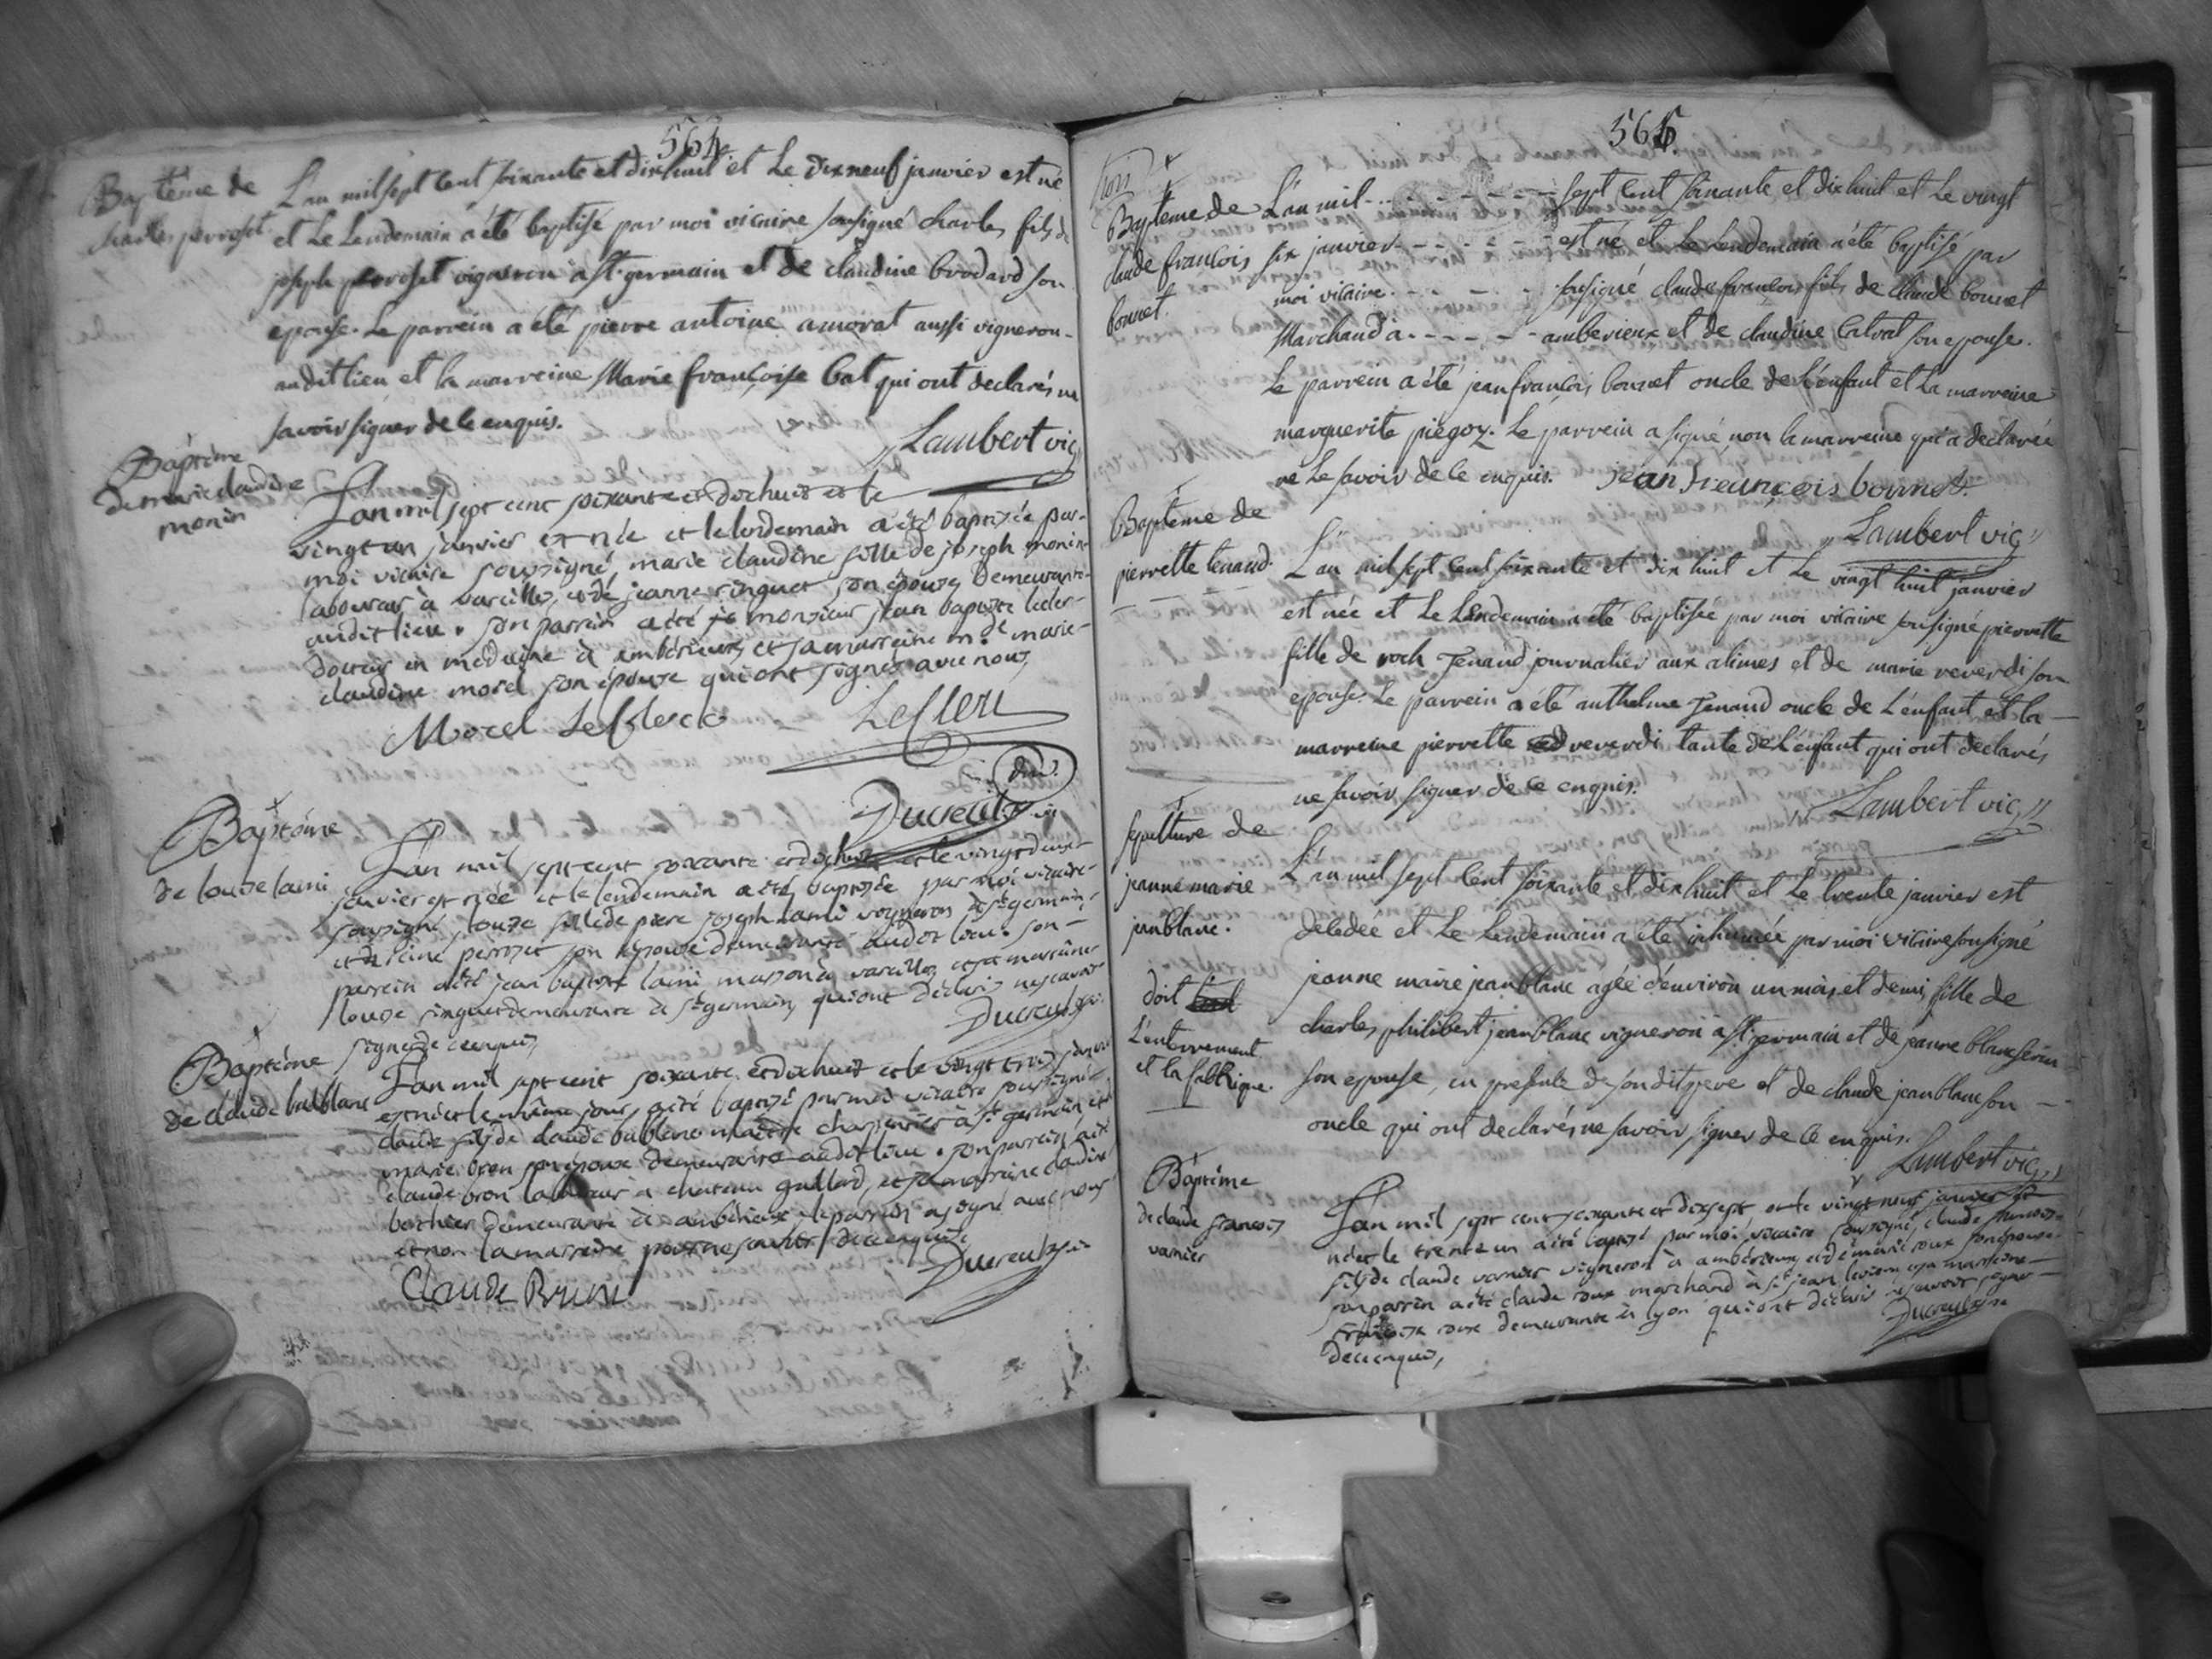 564
Baptême de
charles perroset
L'an mil sept cent soixante et dixhuit et Le dixneuf janvier est né
et Le Lendemain a été baptisé par moi vicaire sousigné charles fils de
joseph perroset vigneron a st. germain et de claudine brodard son
epouse. Le parrein a été pierre antoine amorat aussi vigneron
audit lieu et la marreine Marie françoise bat qui ont declarés ne
savoir signer de ce enquis.
Lambert vic
Baptême
de marie claudine
monin
Lan mil sept cent soixante et dix huit et le
vingt un janvier est née et le lendemain a été baptisée par
moi vicaire soussigné, marie claudine fille de joseph monin
laboureur à vareilles, et de jeanne ringuet son épouse, demeurants
audit lieu. son parrein a été monsieur jean baptiste lecler
docteur en médecine à ambérieux, et sa marreine mde marie
claudine morel son épouse qui ont signés avec nous
Morel LeClerc
LeClerc
Ducreulx vi
Baptême
de louise lami
Lan mil sept cent soixante et dix huit et le vingt deux
janvier est née et le lendemain a été baptisée par moi vicaire
soussigné, louise fille de piere joseph lami vigneron à st germain,
et de perroset son épouse demeurants audit lieu. son
parrein a été jean baptiste lami masson à vareilles et sa marraine
louise ringuet demeurante à st germain, qui ont déclarés ne scavoir
signer de ce enquis,
Ducreulx
Baptême
de claude bablanc
Lan mil sept cent soixante et dix huit et le vingt trois janvier
est né et le même jour, a été baptisé par moi vicaire soussigné
claude fils de claude bablanc maître charpentier à st germain et
marie bron son épouse demeurants audit lieu. son parrein a été
claude bron laboureur à chateau gaillard, et sa marraine claudine
bothier demeurante à ambérieux, le parrein a signé avec nous
et non la marreine pour ne savoir de ce enquise
Claude Brun
Ducreulx
565
Baptême de
claude françois
bonnet.
L'an mil - - - - - - - sept cent soixante et dix huit et Le vingt
six janvier - - - - - - est né et Le Lendemain a été baptisé par
moi vicaire - - - - - sousigné claude françois fils de claude bonnet
Marchand a - - - - - amberieux et de claudine Calvat son epouse.
Le parrein a été jean françois bonnet oncle de L'enfant et La marreine
marguerite piegoz. Le parrein a signé non la marreine qui a declarée
ne Le savoir de ce enquis. jean freançois bonnet.
Lambert vic
Baptême de
pierrette tenaud.
L'an mil sept cent soixante et dix huit et Le vingt huit janvier
est née et Le Lendemain a été baptisée par moi vicaire sousigné pierrette
fille de roch Tenaud journalier aux alimes et de marie reverdi son
epouse. Le parrein a été anthelme Tenaud oncle de L'enfant et la
marreine pierrette reverdi tante de L'enfant qui ont declarés
ne savoir signer de ce enquis.
Lambert vic
sepulture de
jeanne marie
jeanblanc.
doit
L'enterrement
et la fabrique.
L'an mil sept cent soixante et dix huit et Le trente janvier est
decedée et Le Lendemain a été inhumée par moi vicaire sousigné
jeanne marie jeanblanc agée d'environ un mois et demi, fille de
charles philibert jeanblanc vigneron a st. germain et de jeanne
son epouse, en presente de son dit pere et de claude jeanblanc son
oncle qui ont declarés ne savoir signer de ce enquis.
Lambert vic
Baptême
de claude francois
varnier
Lan mil sept cent soixante et dix sept et le vingt neuf janvier est
né et le trente un a été baptisé par moi, vicaire soussigné, claude francois
fils de claude varnier vigneron à ambérieux et de marie roux son épouse.
son parrein a été claude roux marchand à st jean levieux et sa marreine
françoise roux demeurante à lyon qui ont déclarés ne savoir signer
de ce enquis,
Ducreulx